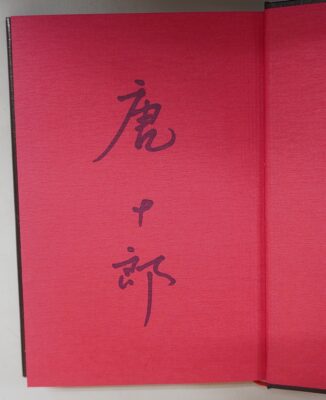 唐十郎